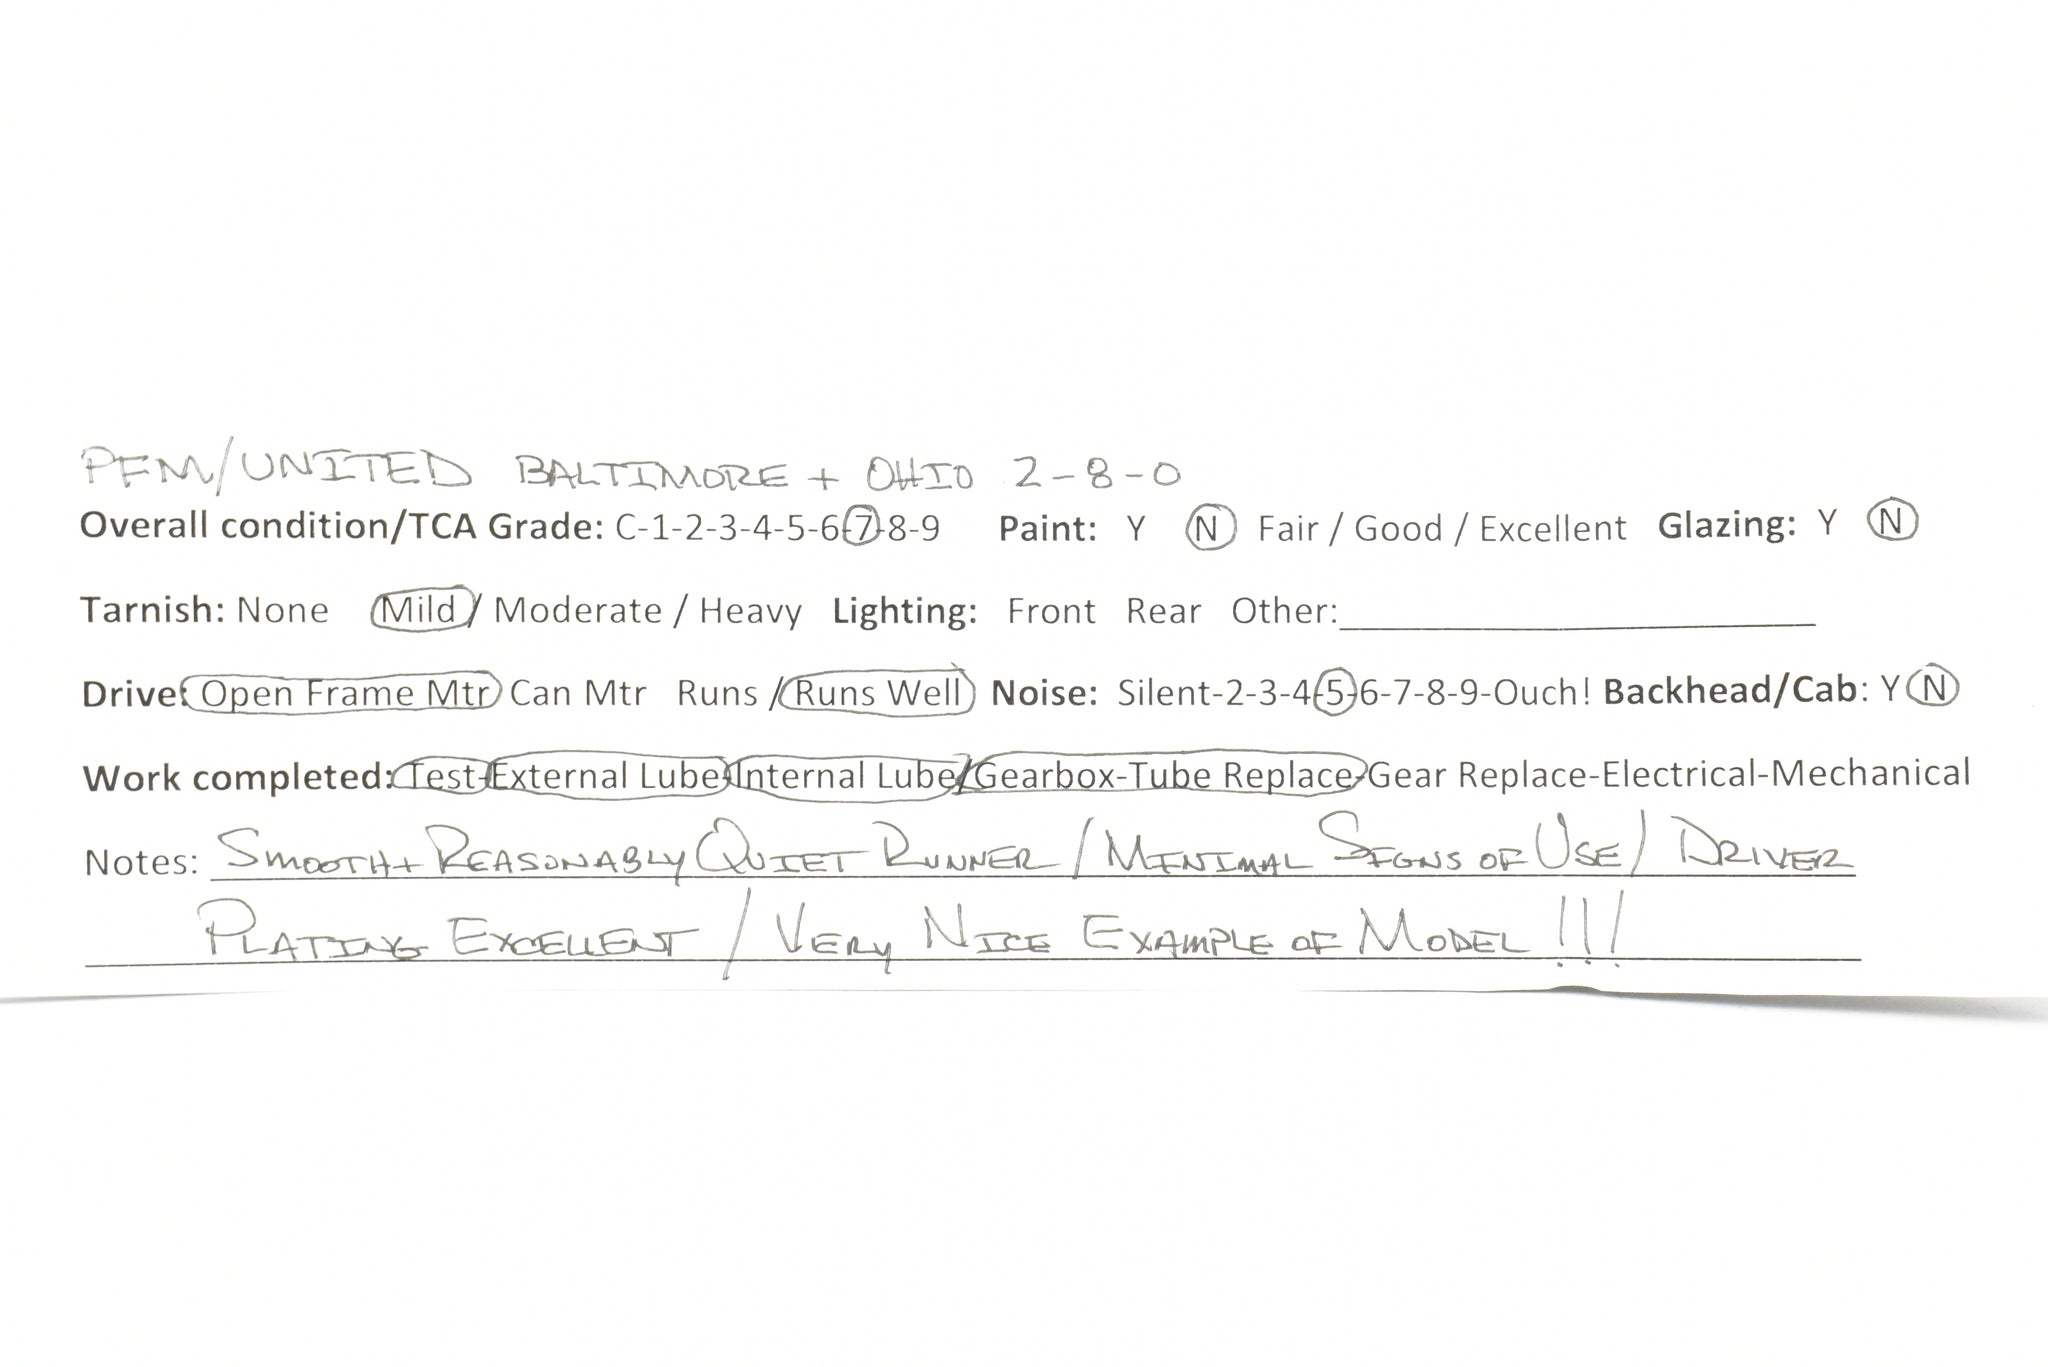 PFM/UNITED BALTIMORE + OHIO 2-8-0
Overall condition/TCA Grade: C-1-2-3-4-5-6-7-8-9 Paint: Y N Fair / Good / Excellent Glazing: Y N
Tarnish: None Mild / Moderate / Heavy Lighting: Front Rear Other:
Drive: Open Frame Mtr Can Mtr Runs / Runs Well Noise: Silent-2-3-4-5-6-7-8-9-Ouch! Backhead/Cab: Y N
Work completed: Test-External Lube-Internal Lube/Gearbox-Tube Replace-Gear Replace-Electrical-Mechanical
Notes: SMOOTH + REASONABLY QUIET RUNNER / MINIMAL SIGNS OF USE / DRIVER
PLATING EXCELLENT / VERY NICE EXAMPLE OF MODEL !!!